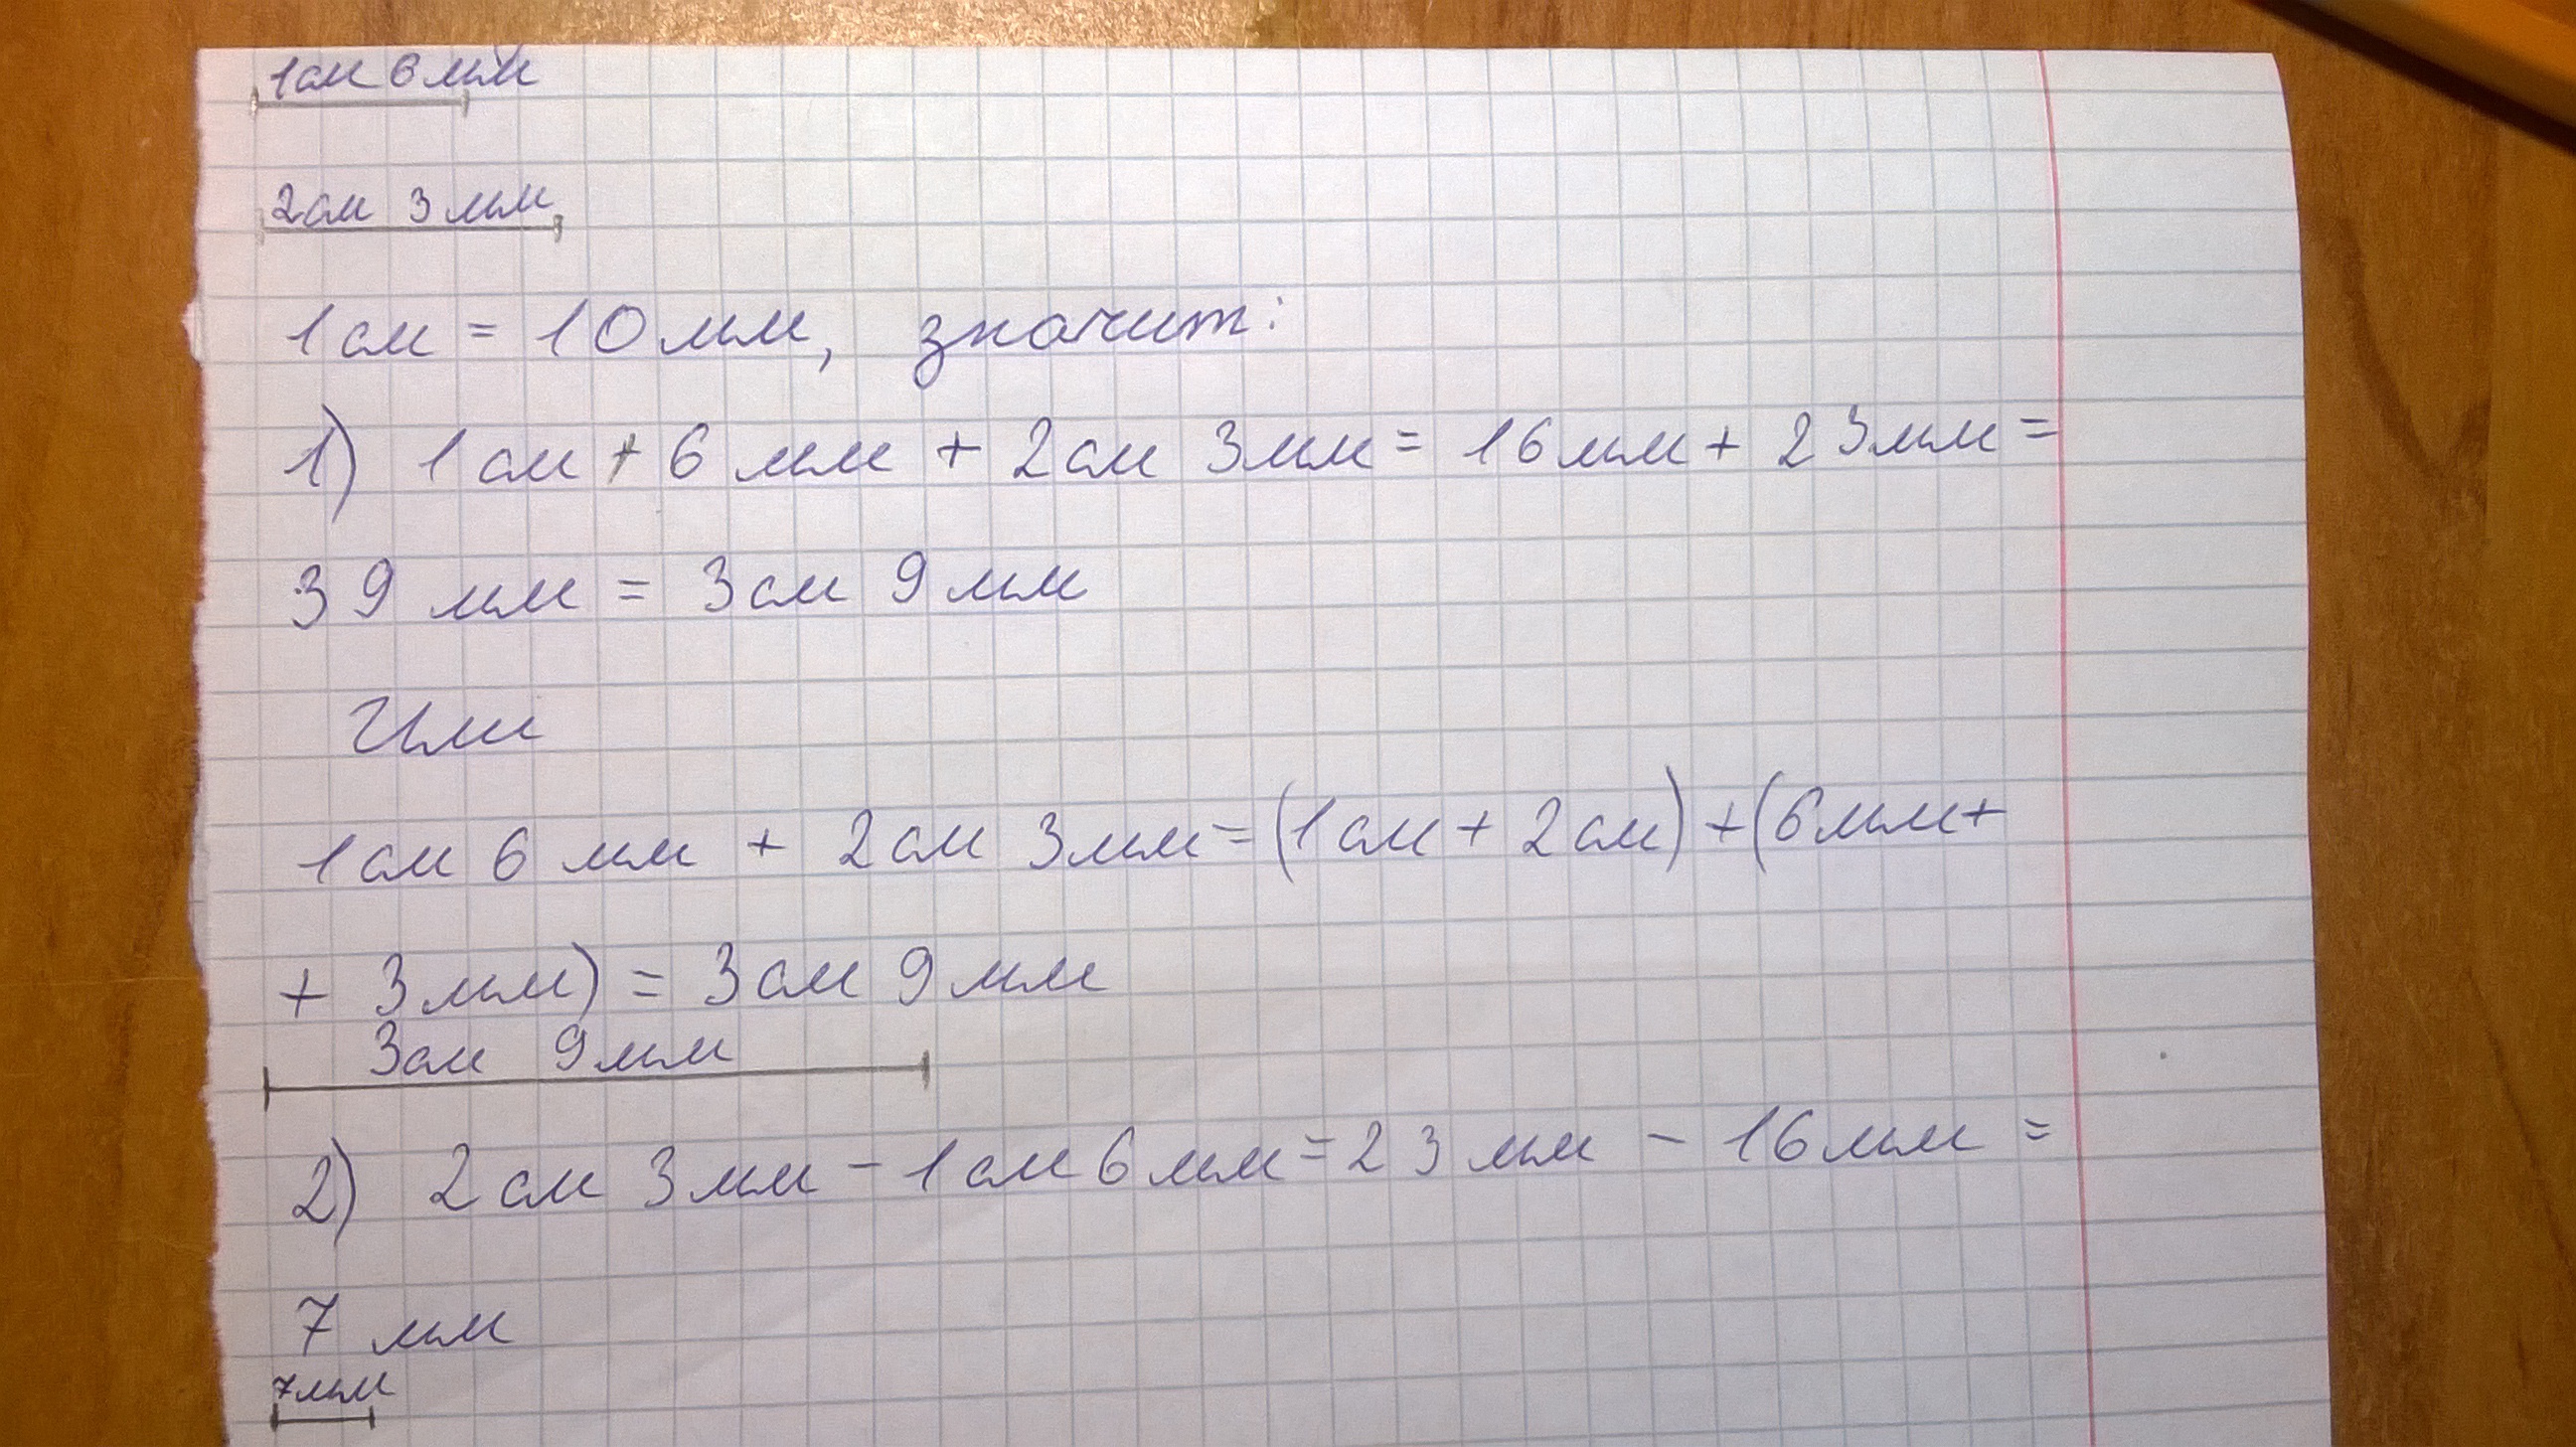 1см 6мм
2см 3мм
1см = 10мм, значит:
1) 1см + 6мм + 2см 3мм = 16мм + 23мм =
39 мм = 3см 9мм
Или
1см 6мм + 2см 3мм = (1см + 2см) + (6мм +
+ 3мм) = 3см 9мм
3см 9мм
2) 2см 3мм - 1см 6мм = 23мм - 16мм =
7 мм
7мм